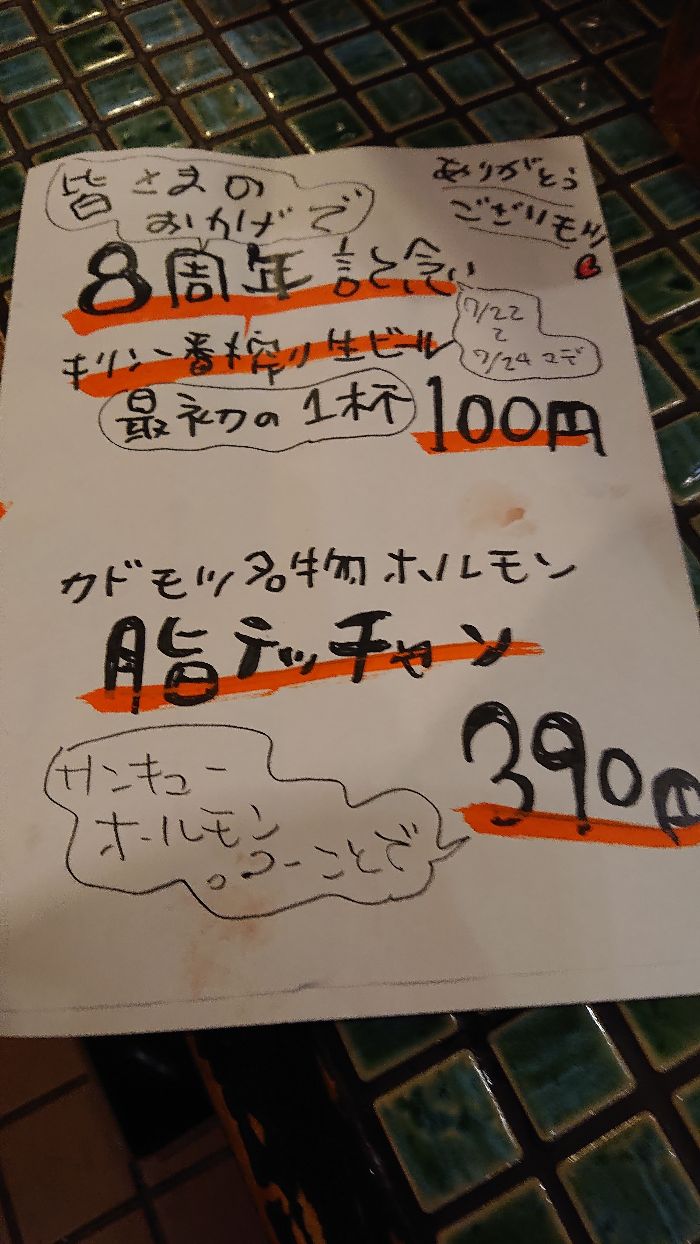 皆さまの
おかげで
ありがとう
ござりモツ
8周年記念
7/22
と
7/24マデ
キリン一番搾り生ビール
最初の1杯 100円
カドモツ名物ホルモン
脂テッチャン
390円
サンキュー
ホールモン
ってことで